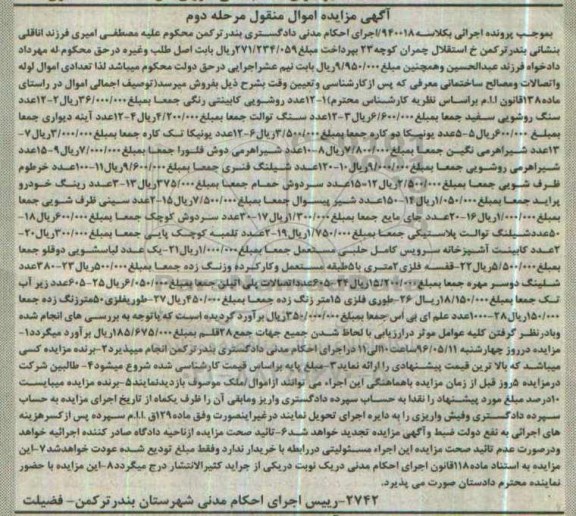 آگهی مزایده اموال منقول مرحله دوم
بموجب پرونده اجرائی بکلاسه ۹۴۰۰۱۸/اجرای احکام مدنی دادگستری بندرترکمن محکوم علیه مصطفی امیری فرزند اناقلی
بنشانی بندرترکمن خ استقلال چمران کوچه۲۳ بپرداخت مبلغ۲۷۱/۲۳۴/۰۵۹ریال بابت اصل طلب وغیره درحق محکوم له مهرداد
دادخواه فرزند عبدالحسین وهمچنین مبلغ۹/۹۵۰/۰۰۰ریال بابت نیم عشراجرایی درحق دولت محکوم میباشد لذا تعدادی اموال لوله
واتصالات ومصالح ساختمانی معرفی که پس ازکارشناسی وتعیین وقت بشرح ذیل بفروش میرسد(توصیف اجمالی اموال در راستای
ماده۱۳۸قانون ا.م براساس نظریه کارشناس محترم)۱-۱۲عدد روشویی کابینتی رنگی جمعا بمبلغ۳۶/۰۰۰/۰۰۰ریال۲-۱۲عدد
سنگ روشویی سفید جمعا بمبلغ۶/۶۰۰/۰۰۰ریال۳-۱۲عدد سنگ توالت جمعا بمبلغ۴/۲۰۰/۰۰۰ریال۴-۱۲عدد آینه دیواری جمعا
بمبلغ ۶۰۰/۰۰۰ریال۵-۵عدد یونیکا دو کاره جمعا بمبلغ۳/۵۰۰/۰۰۰ریال۶-۱۲عدد یونیکا تک کاره جمعا بمبلغ۳/۰۰۰/۰۰۰ریال۷-
۱۳عدد شیراهرمی نگین جمعا بمبلغ۷/۸۰۰/۰۰۰ریال۸-۱۰عدد شیراهرمی دوش فلورا جمعا بمبلغ۷/۰۰۰/۰۰۰ریال۹-۱۵عدد
شیراهرمی روشویی جمعا بمبلغ۹/۰۰۰/۰۰۰ریال۱۰-۱۳۰عدد شیلنگ فنری جمعا بمبلغ۹/۶۰۰/۰۰۰ریال۱۱-۱۰۰عدد خرطوم
ظرف شویی جمعا بمبلغ۲/۵۰۰/۰۰۰ریال۱۲-۱۵عدد سردوش حمام جمعا بمبلغ۳۷۵/۰۰۰ریال۱۳-۳عدد رینگ خودرو
پراید جمعا بمبلغ۱/۰۵۰/۰۰۰ریال۱۴-۱۵۰عدد شیر پیسوال جمعا بمبلغ۷/۵۰۰/۰۰۰ریال۱۵-۲عدد سینی ظرف شویی جمعا
بمبلغ۱/۰۰۰/۰۰۰ریال۱۶-۲۰عدد جای مایع جمعا بمبلغ۱/۳۰۰/۰۰۰ریال۱۷-۳۰عدد سردوش کوچک جمعا بمبلغ۶۰۰/۰۰۰ریال۱۸-
۵۰عددشیلنگ توالت پلاستیکی جمعا بمبلغ۱/۷۵۰/۰۰۰ریال۱۹-۲عدد تلمبه کوچک پایی جمعا بمبلغ۳۰۰/۰۰۰ریال۲۰-
۲عدد کابینت آشپزخانه سرویس کامل حلبی مستعمل جمعا بمبلغ۱/۰۰۰/۰۰۰ریال۲۱-یک عدد لباسشویی دوقلو جمعا
بمبلغ۵/۵۰۰/۰۰۰ریال۲۲-قفسه فلزی۲متری با۵طبقه مستعمل وکارکرده وزنگ زده جمعا بمبلغ۵۰۰/۰۰۰ریال۲۳-۳۸۰عدد
شلینگ دوسر مهره جمعا بمبلغ۱۵/۲۰۰/۰۰۰ریال۲۴-۶۰۵عدداتصالات پلی اتیلن جمعا بمبلغ۶/۰۵۰/۰۰۰ریال۲۵-۶۰۵عدد زیر آب
تک جمعا بمبلغ۱۸/۱۵۰/۰۰۰ریال ۲۶-طوری فلزی ۱۵متر زنگ زده جمعا بمبلغ۴۵۰/۰۰۰ریال۲۷-طوریفلزی۵۰مترزنگ زده جمعا
۱۵۰/۰۰۰ریال۲۸-۱۰۰۰عدد علم ای بی آس جمعا بمبلغ۳۵۰/۰۰۰ریال برآورد گردیده است که باتوجه به بررسی های انجام شده
وبادرنظر گرفتن کلیه عوامل موثر درارزیابی با لحاظ شدن جمیع جهات جمع۲۸قلم بمبلغ۱۸۵/۶۷۵/۰۰۰ریال برآورد میگردد۱-
مزایده درروز چهارشنبه ۹۶/۰۵/۱۱ساعت۱۰الی۱۱ دراجرای احکام مدنی دادگستری بندرترکمن انجام میپذیرد۲-برنده مزایده کسی
میباشد که بالا ترین قیمت پیشنهادی را ارائه نماید ۳-مبلغ پایه براساس قیمت کارشناسی شده شروع میشود۴- طالبین شرکت
درمزایده ۵روز قبل از زمان مزایده باهماهنگی این اجراء می توانند ازاموال /ملک موصوف بازدیدنمایند۵-برنده مزایده میبایست
۱۰درصد مبلغ مورد پیشنهاد را نقدا به حساب سپرده دادگستری واریز ومابقی آن را ظرف یکماه از تاریخ اجرای مزایده به حساب
سپرده دادگستری وفیش واریزی را به دایره اجرای تحویل نمایند درغیراینصورت وفق ماده۱۲۹ق .ا.م سپرده پس ازکسرهزینه
های اجرائی به نفع دولت ضبط وآگهی مزایده تجدید خواهد شد.۶-تائید صحت مزایده ازناحیه دادگاه صادر کننده اجرائیه خواهد
ودرصورت عدم تائید صحت مزایده این اجراء مسئولیتی دررابطه با خریدار ندارد وفقط مبلغ تودیع شده عودت خواهدشد۷-این
مزایده به استناد ماده۱۱۸قانون اجرای احکام مدنی دریک نوبت دریکی از جراید کثیرالانتشار درج میگردد۸-این مزایده با حضور
نماینده محترم دادستان صورت می پذیرد.
۲۷۴۲-رییس اجرای احکام مدنی شهرستان بندرترکمن- فضیلت